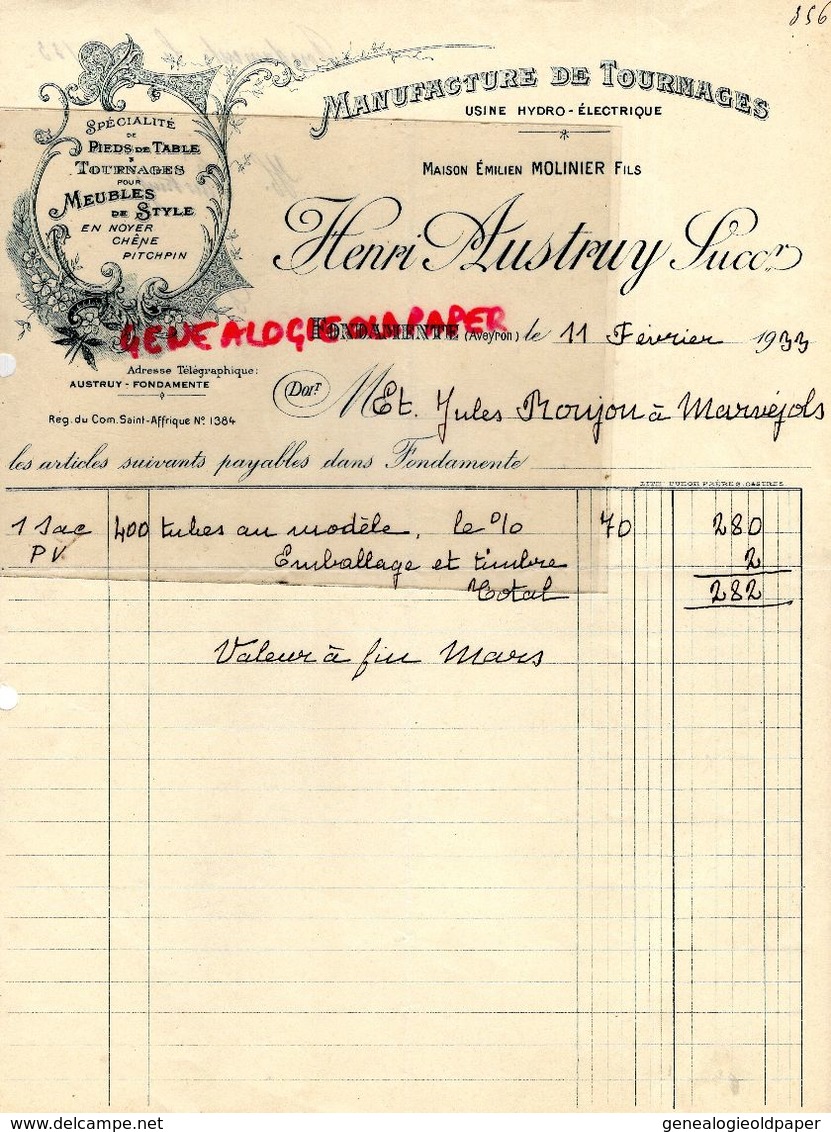 356
MANUFACTURE DE TOURNAGES
USINE HYDRO-ÉLECTRIQUE
SPÉCIALITÉ
DE
PIEDS DE TABLE
&
TOURNAGES
POUR
MEUBLES
DE STYLE
EN NOYER
CHÊNE
PITCHPIN
MAISON ÉMILIEN MOLINIER FILS
Henri Austruy Succr
GENEALOGIEOLDPAPER
FONDAMENTE (Aveyron) le 11 Février 1933
Adresse Télégraphique:
AUSTRUY-FONDAMENTE
Reg. du Com. Saint-Affrique No 1384
Doit
M Et. Jules Roujon à Marvéjols
les articles suivants payables dans Fondamente
1 Sac 400 tubes au modèle, le % 70 280
PV Emballage et timbre 2
Total 282
Valeur à fin Mars
genealogieoldpaper